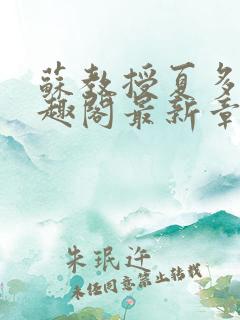 蘇教授夏多
趣閣最新章
朱珉迕
未经同意禁止转载